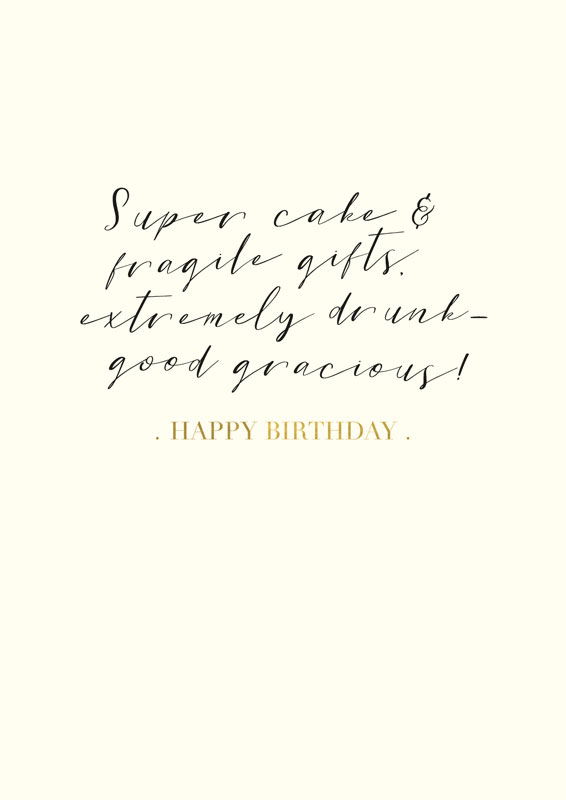 Super cake &
fragile gifts.
extremely drunk-
good gracious!
. HAPPY BIRTHDAY .